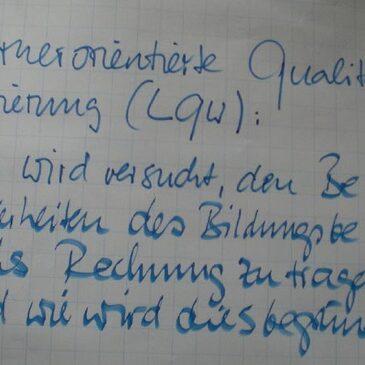 rnerorientierte Qualit
ierung (LQW):
wird versucht, den Be
erheiten des Bildungsbe
is Rechnung zu trage
d wie wird dies begrün